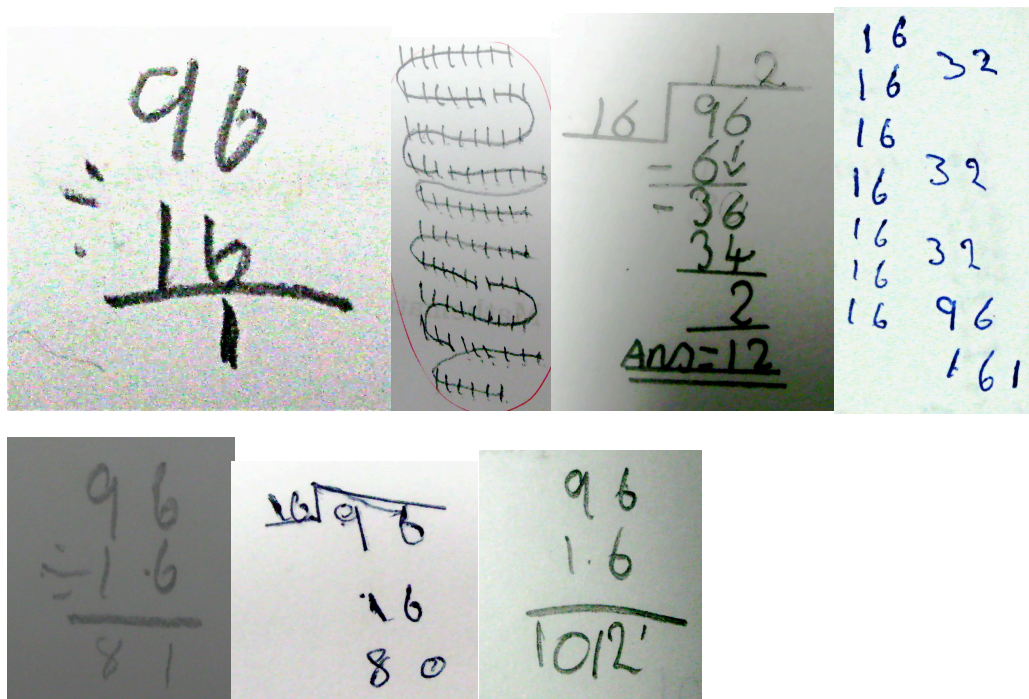 96
÷
16
1
12
16 96
- 6↓
= 36
34
2
Ans=12
16
32
16
16
16 32
16
32
16
16 96
161
96
÷ 1.6
81
16 96
16
80
96
1.6
1012